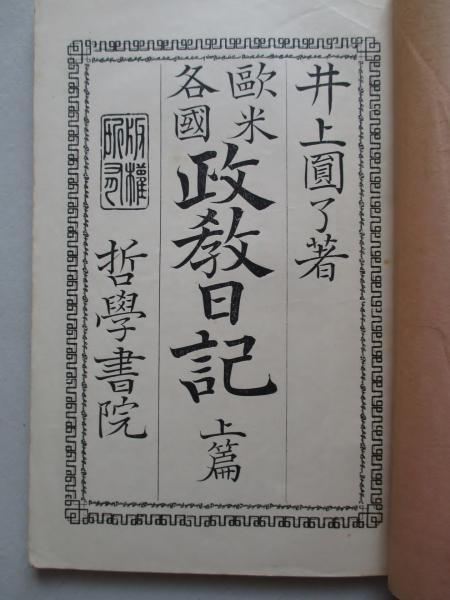 井上圓了著
歐米
各國
政教日記
上篇
版權
所有
哲學書院